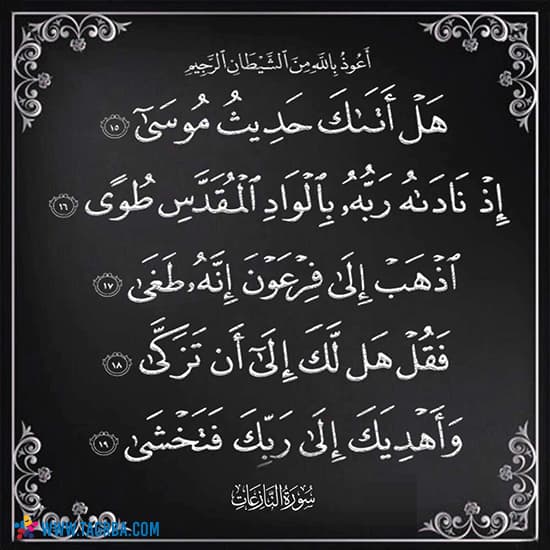 أَعُوذُ بِاللَّهِ مِنَ الشَّيْطَانِ الرَّجِيمِ
هَلۡ أَتَىٰكَ حَدِيثُ مُوسَىٰٓ ١٥
إِذۡ نَادَىٰهُ رَبُّهُۥ بِٱلۡوَادِ ٱلۡمُقَدَّسِ طُوًى ١٦
ٱذۡهَبۡ إِلَىٰ فِرۡعَوۡنَ إِنَّهُۥ طَغَىٰ ١٧
فَقُلۡ هَل لَّكَ إِلَىٰٓ أَن تَزَكَّىٰ ١٨
وَأَهۡدِيَكَ إِلَىٰ رَبِّكَ فَتَخۡشَىٰ ١٩
سُورَةُ النَّازِعَاتِ